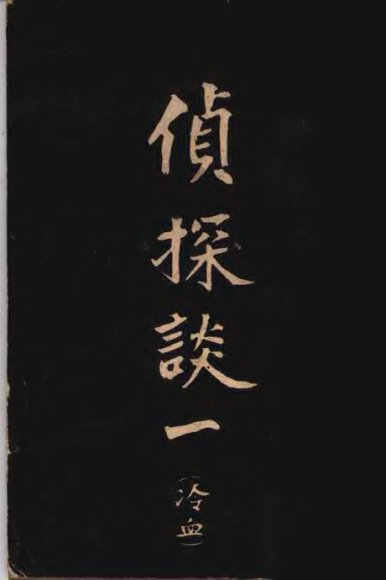 偵探談一
（冷血）